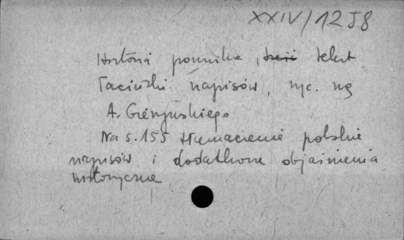 XXIV/1258
Historia pomnika, treść tekst
łaciński napisów, ryc. wg
A. Gierymskiego.
Na s. 155 tłumaczenie polskie
napisów i dodatkowe objaśnienia
historyczne